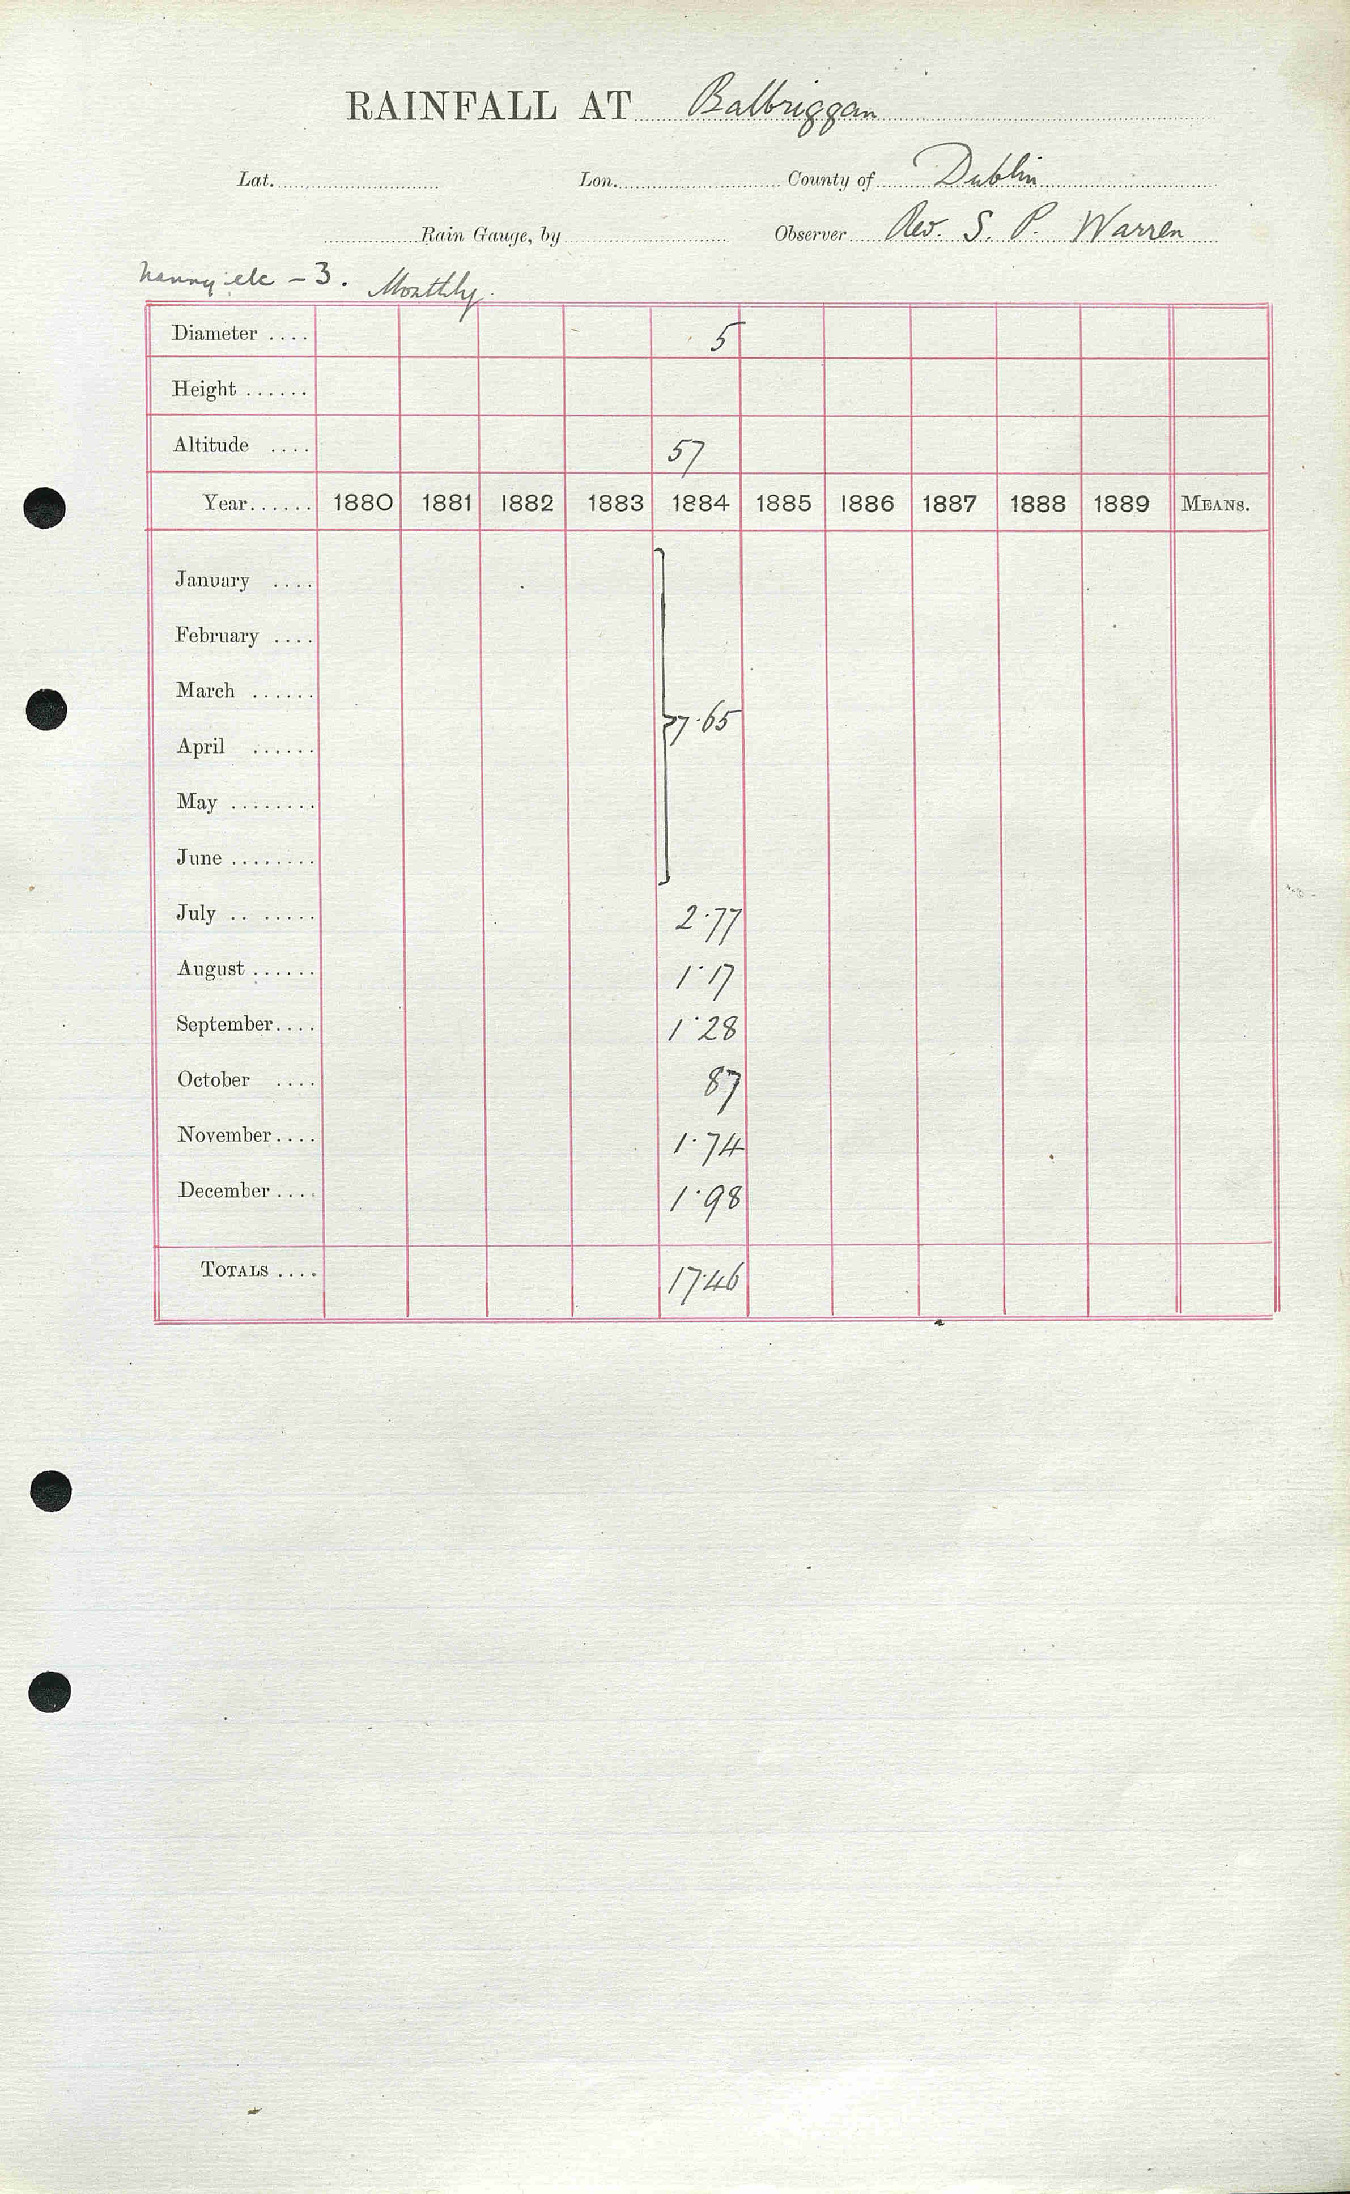 RAINFALL AT Balbriggan
Lat. Lon. County of Dublin
Rain Gauge, by Observer Rev. S. P. Warren
Nanny etc - 3. Monthly.
Diameter .... 5
Height ......
Altitude .... 57
Year...... 1880 1881 1882 1883 1884 1885 1886 1887 1888 1889 MEANS.
January ....
February ....
March ......
7.65
April ......
May ........
June ........
July .. ..... 2.77
August ...... 1.17
September.... 1.28
October .... 87
November.... 1.74
December .... 1.98
TOTALS .... 17.46